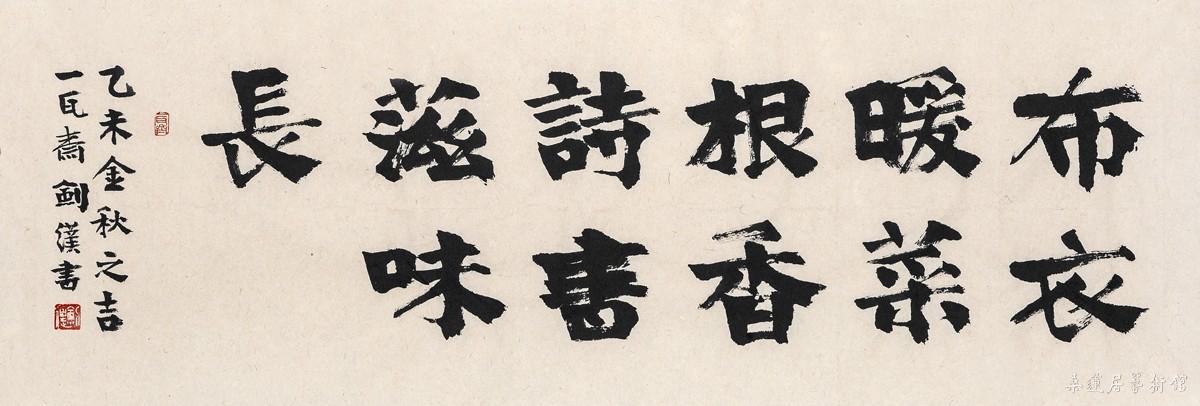 布衣
暖菜
根香
詩書
滋味
長
乙未金秋之吉
一瓦齋劍漢書
桑蓮居藝術館